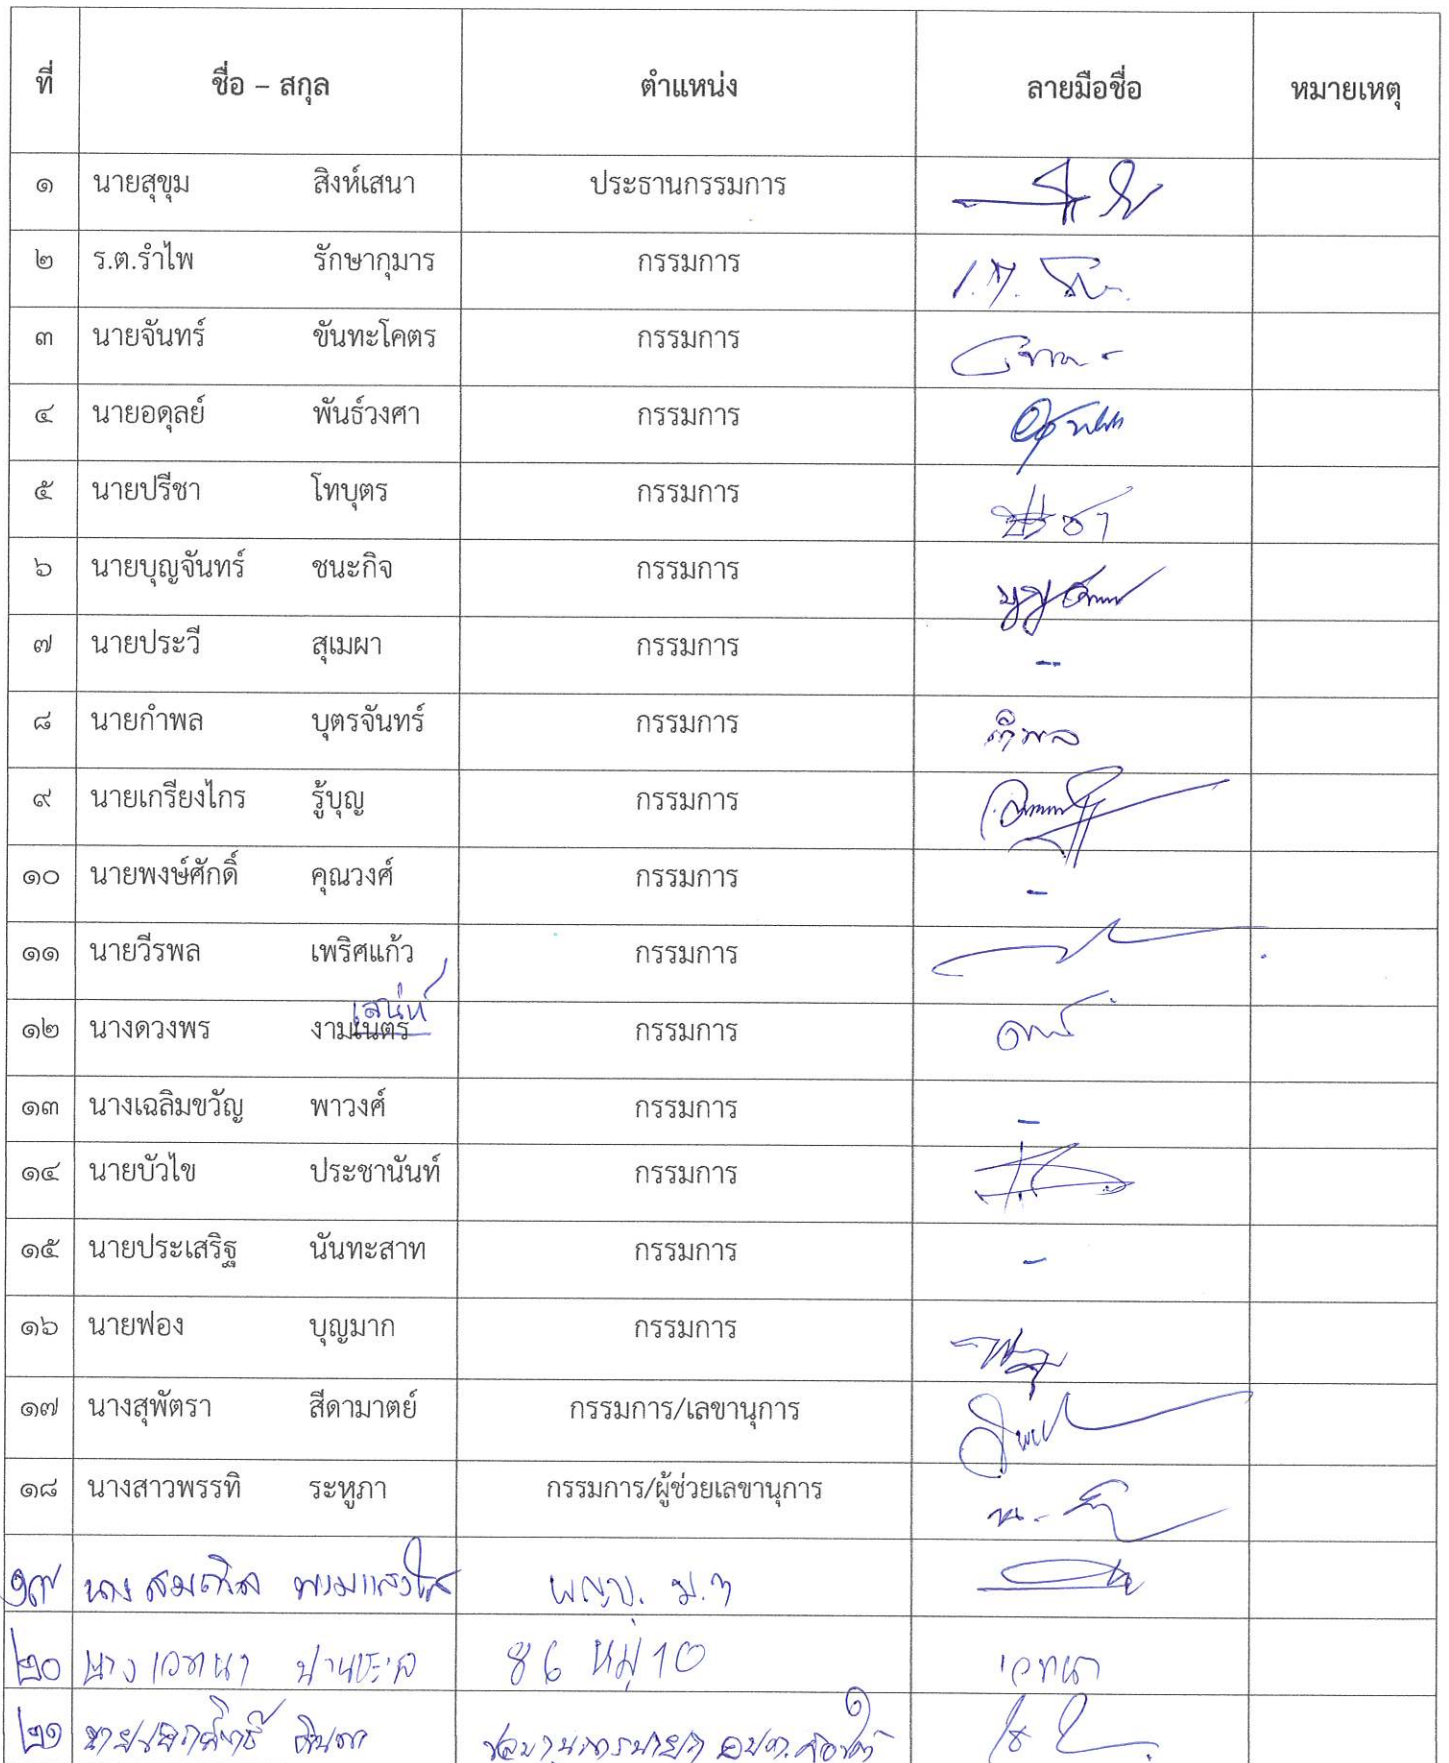 ที่ ชื่อ – สกุล ตำแหน่ง ลายมือชื่อ หมายเหตุ
๑ นายสุขุม สิงห์เสนา ประธานกรรมการ
๒ ร.ต.รำไพ รักษากุมาร กรรมการ
๓ นายจันทร์ ขันทะโคตร กรรมการ
๔ นายอดุลย์ พันธ์วงศา กรรมการ
๕ นายปรีชา โทบุตร กรรมการ ปรีชา
๖ นายบุญจันทร์ ชนะกิจ กรรมการ
๗ นายประวี สุเมผา กรรมการ -
๘ นายกำพล บุตรจันทร์ กรรมการ กำพล
๙ นายเกรียงไกร รู้บุญ กรรมการ
๑๐ นายพงษ์ศักดิ์ คุณวงศ์ กรรมการ -
๑๑ นายวีรพล เพริศแก้ว กรรมการ
เสน่ห์
๑๒ นางดวงพร งามเนตร กรรมการ
๑๓ นางเฉลิมขวัญ พาวงศ์ กรรมการ -
๑๔ นายบัวไข ประชานันท์ กรรมการ
๑๕ นายประเสริฐ นันทะสาท กรรมการ -
๑๖ นายฟอง บุญมาก กรรมการ
๑๗ นางสุพัตรา สีดามาตย์ กรรมการ/เลขานุการ
๑๘ นางสาวพรรทิ ระหูภา กรรมการ/ผู้ช่วยเลขานุการ
๑๙ นาง
๒๐ นาง 86 หมู่ 10
๒๑